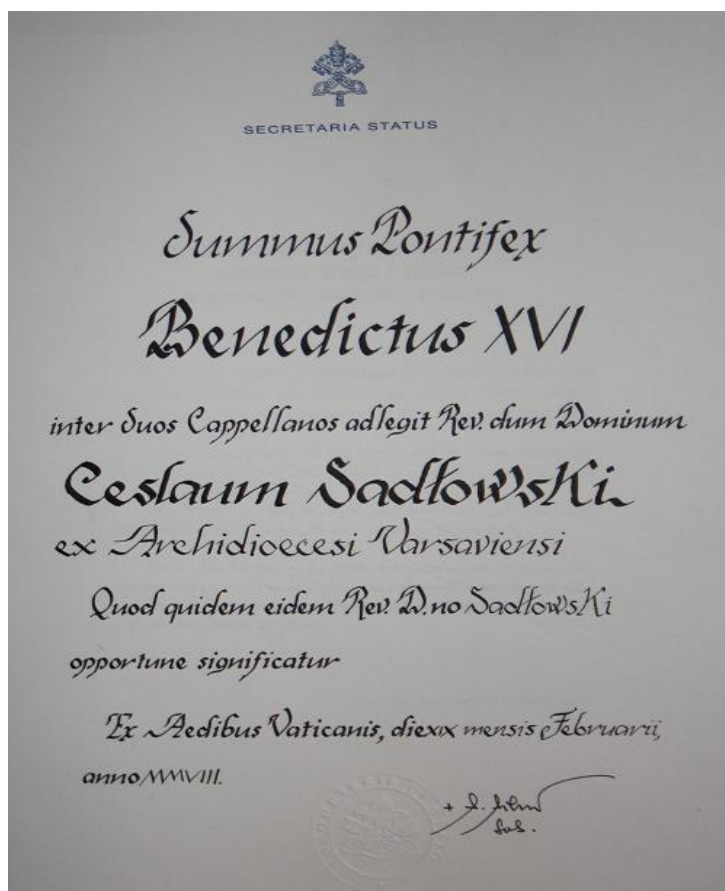 SECRETARIA STATUS
Summus Pontifex
Benedictus XVI
inter Suos Cappellanos adlegit Rev.dum Dominum
Ceslaum Sadłowski
ex Archidioecesi Varsaviensi
Quod quidem eidem Rev. D.no Sadłowski
opportune significatur
Ex Aedibus Vaticanis, die xix mensis Februarii,
anno MMVIII.
Sub.